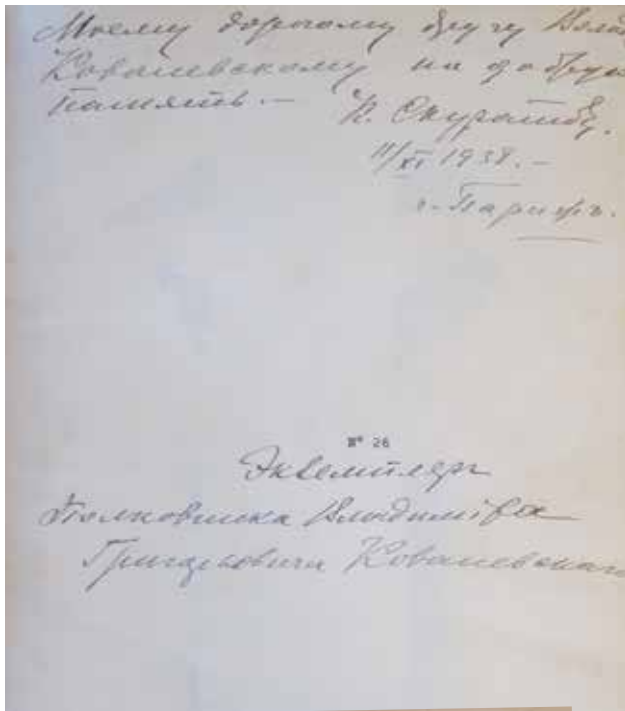 Моему дорогому другу Влад
Ковалевскому на добрую
память. —
К. Скуратовъ.
11/XI 1938. —
г. Парижъ.
№ 26
Экземпляръ
Полковника Владимiра
Григорьевича Ковалевскаго